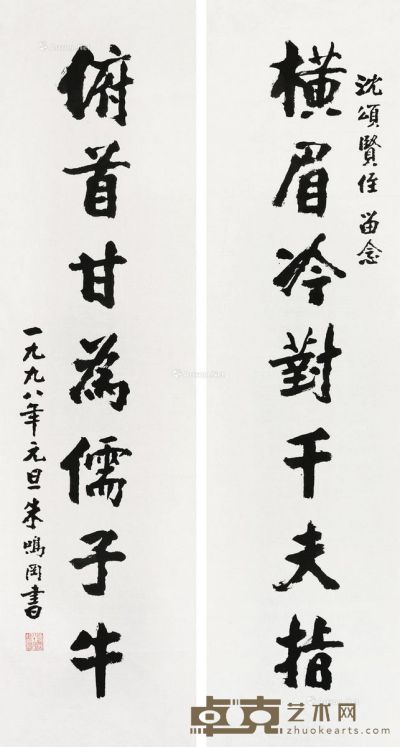 沈頌賢侄 留念
横眉冷對千夫指
俯首甘為儒子牛
一九九八年元旦朱鳴岡書
卓克艺术网
zhuokearts.com